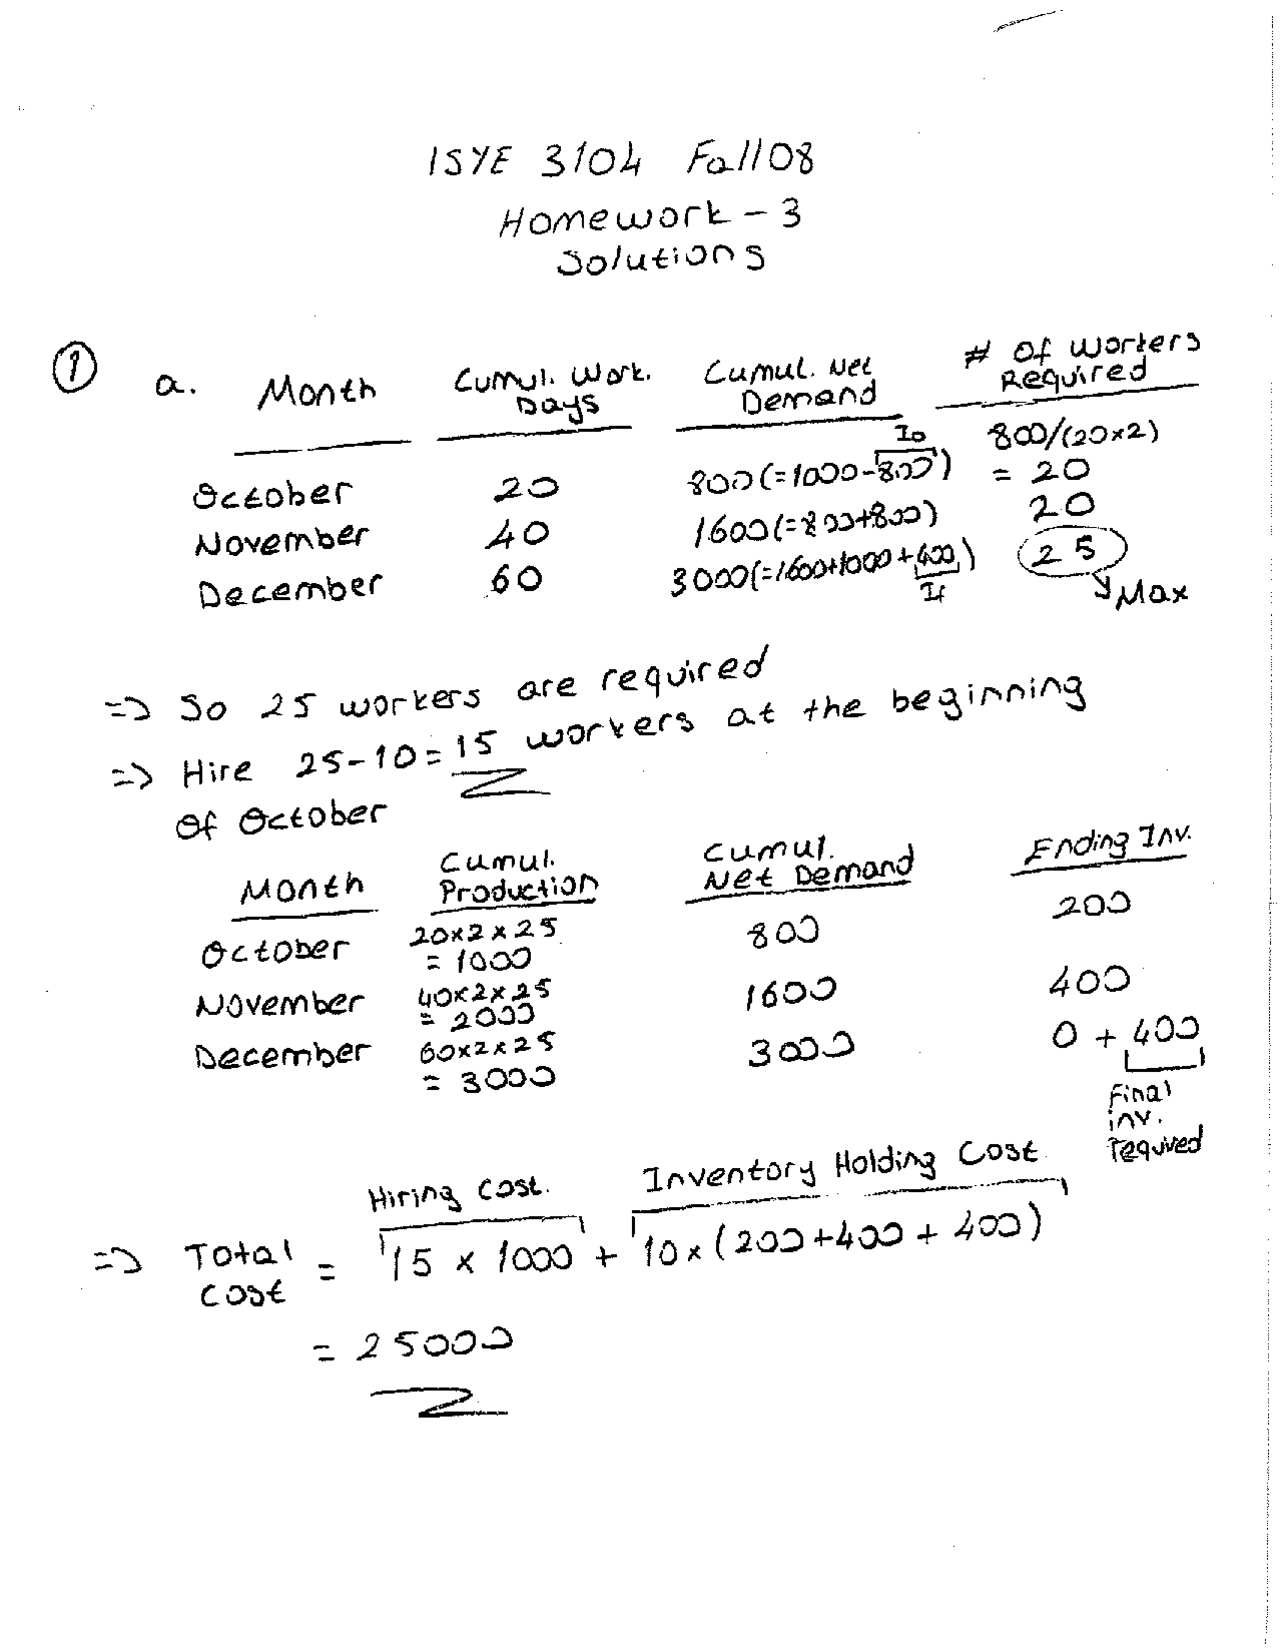 ISYE 3104 Fall08
Homework - 3
Solutions
① a. Month Cumul. Work. Days Cumul. Net Demand # Of Workers Required
October 20 800(=1000-800) I0 800/(20x2) = 20
November 40 1600(=800+800) 20
December 60 3000(=1600+1000+400) If 25 Max
=> So 25 workers are required
=> Hire 25-10=15 workers at the beginning
Of October
Month Cumul. Production Cumul. Net Demand Ending Inv.
October 20x2x25 = 1000 800 200
November 40x2x25 = 2000 1600 400
December 60x2x25 = 3000 3000 0 + 400
Final
inv.
required
Hiring Cost. Inventory Holding Cost
=> Total Cost = 15 x 1000 + 10x(200+400+400)
= 25000